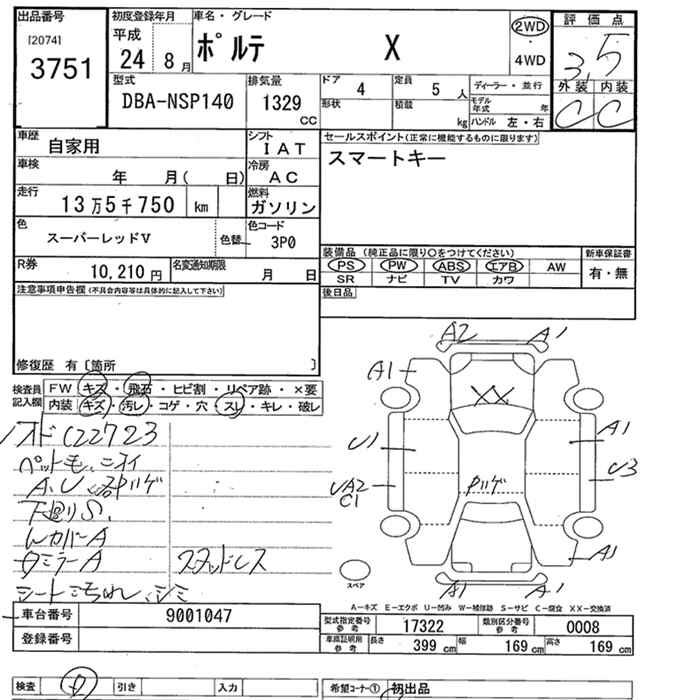 出品番号
[2074]
3751
初度登録年月
平成
24 8月
車名・グレード
ポルテ X
2WD
・
4WD
評価点
3.5
外装 内装
C C
型式
DBA-NSP140
排気量
1329
CC
ドア
4
定員
5 人
ディーラー・並行
形状
積載
kg
モデル年式 年
ハンドル 左・右
車歴
自家用
シフト
IAT
セールスポイント(正常に機能するものに限ります)
スマートキー
車検
年 月( 日)
冷房
AC
走行
13万5千750 km
燃料
ガソリン
色
スーパーレッドV
色替
色コード
3P0
R券
10,210 円
名変通知期限
月 日
装備品(純正品に限り○をつけてください)
新車保証書
PS PW ABS エアB AW
SR ナビ TV カワ
有・無
後日品
注意事項申告欄(不具合内容等は具体的に記入して下さい)
修復歴 有〔箇所 〕
検査員
記入欄
FW キズ・飛石・ヒビ割・リペア跡・×要
内装 キズ・汚レ・コゲ・穴・スレ・キレ・破レ
C22723
ペット毛、ニオイ
A、U
下回りS、
WカバーA
ミラーA
スタッドレス
シート汚れ、シミ
A2 A1
A1
XX
U1 A1
UA2
C1
U3
A1
A1 A1
スペア
A−キズ E−エクボ U−凹み W−補修跡 S−サビ C−腐食 XX−交換済
車台番号
9001047
登録番号
型式指定番号
参考
17322
類別区分番号
参考
0008
車検証明用
参考
長さ 399 cm
幅 169 cm
高さ 169 cm
検査
引き
入力
希望コーナー① 初出品